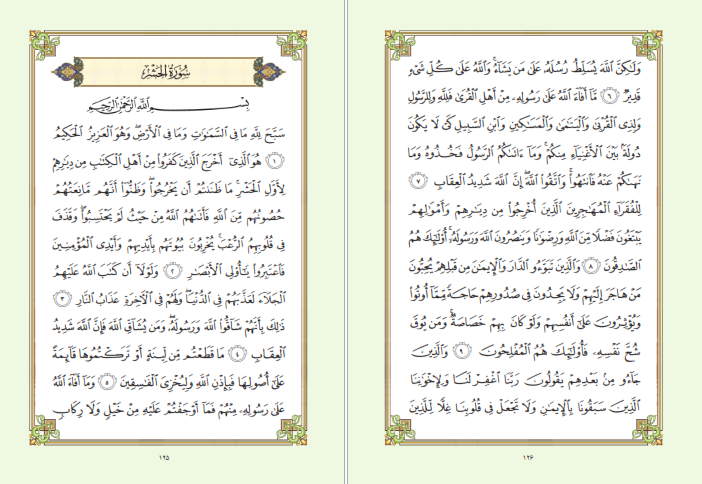 سُورَةُ الحَشْرِ
بِسْمِ اللَّهِ الرَّحْمَٰنِ الرَّحِيمِ
سَبَّحَ لِلَّهِ مَا فِي السَّمَاوَاتِ وَمَا فِي الْأَرْضِ ۖ وَهُوَ الْعَزِيزُ الْحَكِيمُ
﴿١﴾ هُوَ الَّذِي أَخْرَجَ الَّذِينَ كَفَرُوا مِنْ أَهْلِ الْكِتَابِ مِن دِيَارِهِمْ
لِأَوَّلِ الْحَشْرِ ۚ مَا ظَنَنتُمْ أَن يَخْرُجُوا ۖ وَظَنُّوا أَنَّهُم مَّانِعَتُهُمْ
حُصُونُهُم مِّنَ اللَّهِ فَأَتَاهُمُ اللَّهُ مِنْ حَيْثُ لَمْ يَحْتَسِبُوا ۖ وَقَذَفَ
فِي قُلُوبِهِمُ الرُّعْبَ ۚ يُخْرِبُونَ بُيُوتَهُم بِأَيْدِيهِمْ وَأَيْدِي الْمُؤْمِنِينَ
فَاعْتَبِرُوا يَا أُولِي الْأَبْصَارِ ﴿٢﴾ وَلَوْلَا أَن كَتَبَ اللَّهُ عَلَيْهِمُ
الْجَلَاءَ لَعَذَّبَهُمْ فِي الدُّنْيَا ۖ وَلَهُمْ فِي الْآخِرَةِ عَذَابُ النَّارِ ﴿٣﴾
ذَٰلِكَ بِأَنَّهُمْ شَاقُّوا اللَّهَ وَرَسُولَهُ ۖ وَمَن يُشَاقِّ اللَّهَ فَإِنَّ اللَّهَ شَدِيدُ
الْعِقَابِ ﴿٤﴾ مَا قَطَعْتُم مِّن لِّينَةٍ أَوْ تَرَكْتُمُوهَا قَائِمَةً
عَلَىٰ أُصُولِهَا فَبِإِذْنِ اللَّهِ وَلِيُخْزِيَ الْفَاسِقِينَ ﴿٥﴾ وَمَا أَفَاءَ اللَّهُ
عَلَىٰ رَسُولِهِ مِنْهُمْ فَمَا أَوْجَفْتُمْ عَلَيْهِ مِنْ خَيْلٍ وَلَا رِكَابٍ
١٢٥
وَلَٰكِنَّ اللَّهَ يُسَلِّطُ رُسُلَهُ عَلَىٰ مَن يَشَاءُ ۚ وَاللَّهُ عَلَىٰ كُلِّ شَيْءٍ
قَدِيرٌ ﴿٦﴾ مَّا أَفَاءَ اللَّهُ عَلَىٰ رَسُولِهِ مِنْ أَهْلِ الْقُرَىٰ فَلِلَّهِ وَلِلرَّسُولِ
وَلِذِي الْقُرْبَىٰ وَالْيَتَامَىٰ وَالْمَسَاكِينِ وَابْنِ السَّبِيلِ كَيْ لَا يَكُونَ
دُولَةً بَيْنَ الْأَغْنِيَاءِ مِنكُمْ ۚ وَمَا آتَاكُمُ الرَّسُولُ فَخُذُوهُ وَمَا
نَهَاكُمْ عَنْهُ فَانتَهُوا ۚ وَاتَّقُوا اللَّهَ ۖ إِنَّ اللَّهَ شَدِيدُ الْعِقَابِ ﴿٧﴾
لِلْفُقَرَاءِ الْمُهَاجِرِينَ الَّذِينَ أُخْرِجُوا مِن دِيَارِهِمْ وَأَمْوَالِهِمْ
يَبْتَغُونَ فَضْلًا مِّنَ اللَّهِ وَرِضْوَانًا وَيَنصُرُونَ اللَّهَ وَرَسُولَهُ ۚ أُولَٰئِكَ هُمُ
الصَّادِقُونَ ﴿٨﴾ وَالَّذِينَ تَبَوَّءُو الدَّارَ وَالْإِيمَانَ مِن قَبْلِهِمْ يُحِبُّونَ
مَنْ هَاجَرَ إِلَيْهِمْ وَلَا يَجِدُونَ فِي صُدُورِهِمْ حَاجَةً مِّمَّا أُوتُوا
وَيُؤْثِرُونَ عَلَىٰ أَنفُسِهِمْ وَلَوْ كَانَ بِهِمْ خَصَاصَةٌ ۚ وَمَن يُوقَ
شُحَّ نَفْسِهِ فَأُولَٰئِكَ هُمُ الْمُفْلِحُونَ ﴿٩﴾ وَالَّذِينَ
جَاءُو مِن بَعْدِهِمْ يَقُولُونَ رَبَّنَا اغْفِرْ لَنَا وَلِإِخْوَانِنَا
الَّذِينَ سَبَقُونَا بِالْإِيمَانِ وَلَا تَجْعَلْ فِي قُلُوبِنَا غِلًّا لِّلَّذِينَ
١٢٦